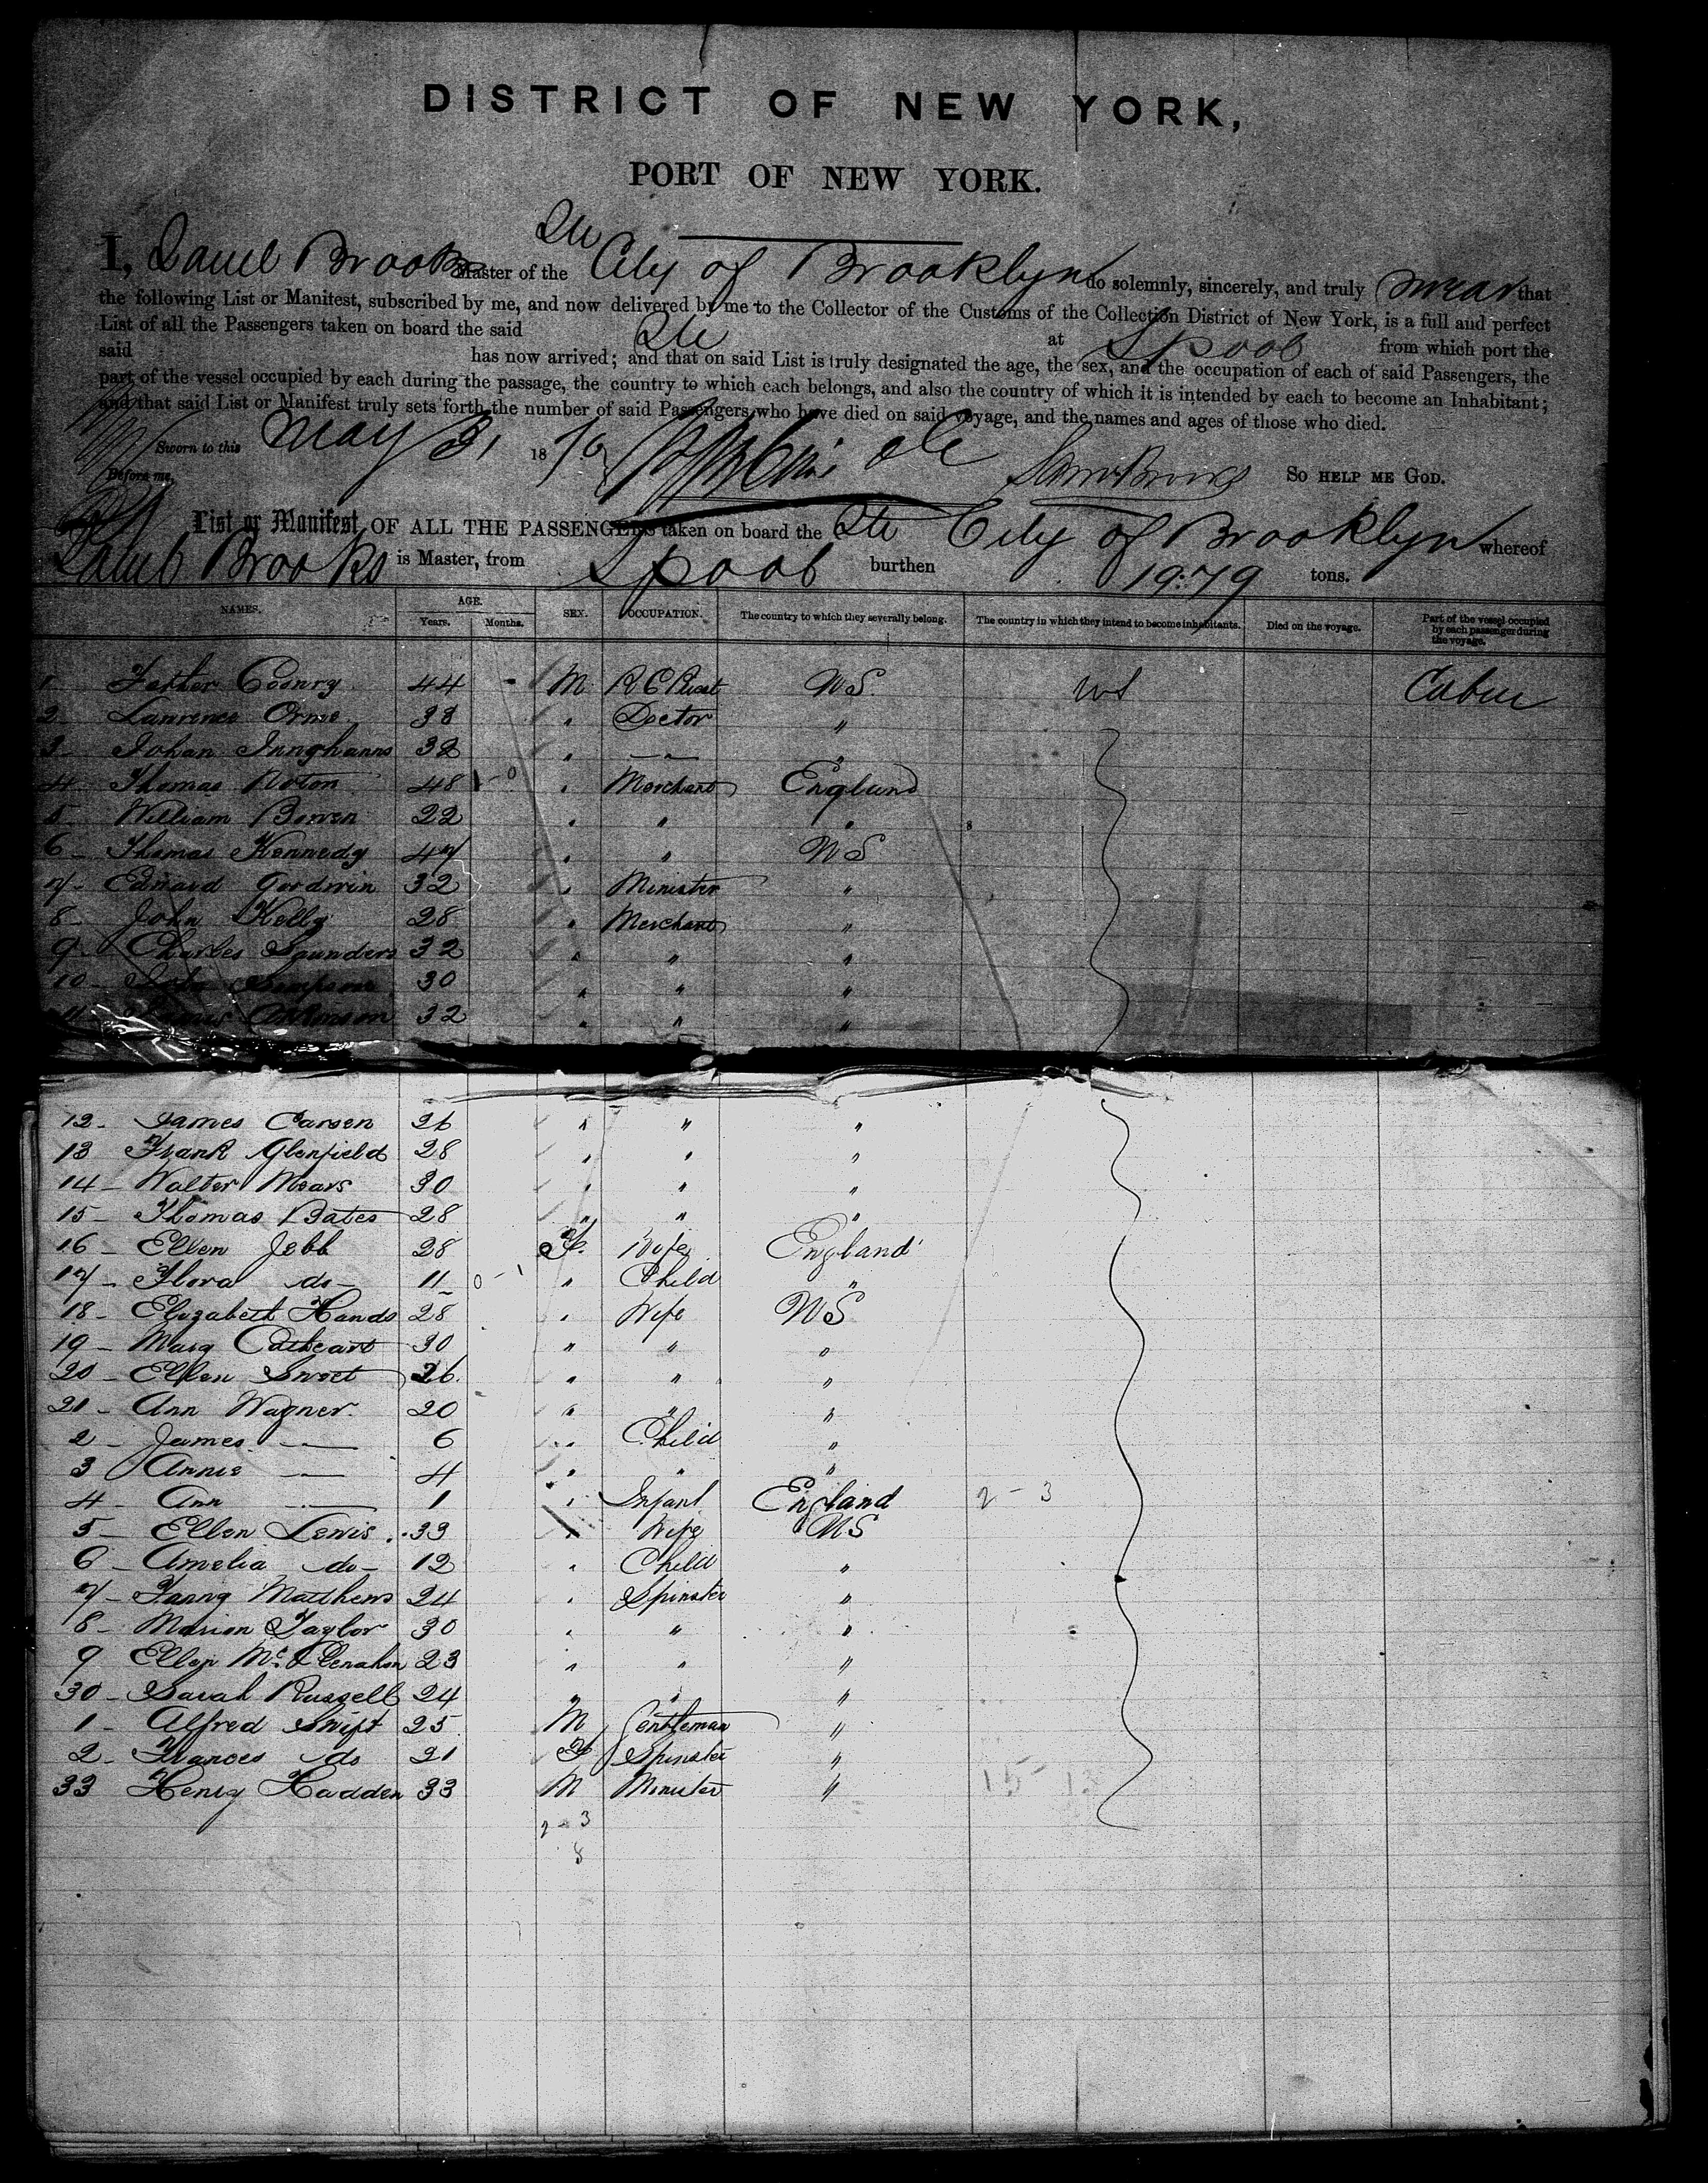 DISTRICT OF NEW YORK,
PORT OF NEW YORK.
I, Brooks Master of the City of Brooklyn do solemnly, sincerely, and truly swear that
the following List or Manifest, subscribed by me, and now delivered by me to the Collector of the Customs of the Collection District of New York, is a full and perfect
List of all the Passengers taken on board the said at Lpool from which port the
said has now arrived; and that on said List is truly designated the age, the sex, and the occupation of each of said Passengers, the
part of the vessel occupied by each during the passage, the country to which each belongs, and also the country of which it is intended by each to become an Inhabitant;
and that said List or Manifest truly sets forth the number of said Passengers who have died on said voyage, and the names and ages of those who died.
Sworn to this May 31 1870 So HELP ME GOD.
Before me,
List or Manifest OF ALL THE PASSENGERS taken on board the City of Brooklyn whereof
Brooks is Master, from Lpool burthen 19:79 tons.
NAMES. AGE. SEX. OCCUPATION. The country to which they severally belong. The country in which they intend to become inhabitants. Died on the voyage. Part of the vessel occupied by each passenger during the voyage.
Years. Months.
1 Father Coonry 44 - M R C Priest US US Cabin
2 Lawrence Orme 38 " Doctor "
3 Johan Innghanns 32 " — "
4 Thomas Noton 48 1-0 " Merchant England
5 William Bowen 22 " " "
6 Thomas Kennedy 47 " " US
7 Edward Goodwin 32 " Minister "
8 John Kelly 28 " Merchant "
9 Charles Saunders 32 " " "
10 John Simpson 30 " " "
11 Atkinson 32 " " "
12 - James Carsen 26 " " "
13 Frank Glenfield 28 " " "
14 - Walter Mears 30 " " "
15 - Thomas Bates 28 " " "
16 - Ellen Jebb 28 F. Wife England
17 - Flora do - 11 0-1 " Child "
18 - Elizabeth Hands 28 " Wife US
19 - Mary Cathcart 30 " " "
20 - Ellen Sweet 26 " " "
21 - Ann Wagner 20 " " "
2 - James — 6 " Child "
3 Annie — 4 " " "
4 - Ann — 1 " Infant England 2-3
5 - Ellen Lewis 33 " Wife US
6 - Amelia do - 12 " Child "
7 - Fanny Matthews 24 " Spinster "
8 - Marion Taylor 30 " " "
9 Ellen McClenahan 23 " " "
30 - Sarah Russell 24 " " "
1 - Alfred Swift 25 M Gentleman "
2 - Frances do 21 F Spinster "
33 Henry Hadden 33 M Minister "
2-3
8